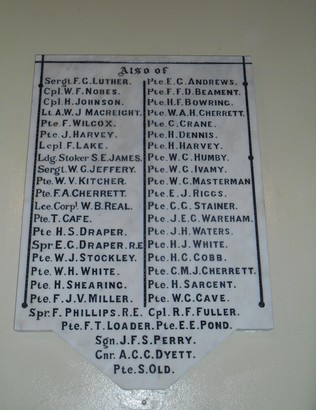 Also of
Sergt. F.G. Luther.
Cpl. W.F. Nobes.
Cpl. H. Johnson.
Lt. A.W.J. Macreight.
Pte. F. Wilcox.
Pte. J. Harvey.
Lcpl. F. Lake.
Ldg. Stoker S.E. James.
Sergt. W.G. Jeffery.
Pte. W.V. Kitcher.
Pte. F.A. Cherrett.
Lce. Corpl. W.B. Real.
Pte. T. Cafe.
Pte H.S. Draper.
Spr. E.C. Draper. R.E
Pte. W.J. Stockley.
Pte. W.H. White.
Pte. H. Shearing.
Pte. F.J.V. Miller.
Pte. E.C. Andrews.
Pte. F.F.D. Beament.
Pte. H.F. Bowring.
Pte. W.A.H. Cherrett.
Pte. C. Crane.
Pte. H. Dennis.
Pte. H. Harvey.
Pte. W.C. Humby.
Pte. W.C. Ivamy.
Pte. W.C. Masterman
Pte. E.J. Riggs.
Pte. C.C. Stainer.
Pte. J.E.C. Wareham.
Pte. J.H. Waters.
Pte. H.J. White.
Pte. H.C. Cobb.
Pte. C.M.J. Cherrett.
Pte. H. Sargent.
Pte. W.C. Cave.
Spr. F. Phillips. R.E. Cpl. R.F. Fuller.
Pte. F.T. Loader. Pte. E.E. Pond.
Sgn. J.F.S. Perry.
Gnr. A.C.C. Dyett.
Pte. S. Old.